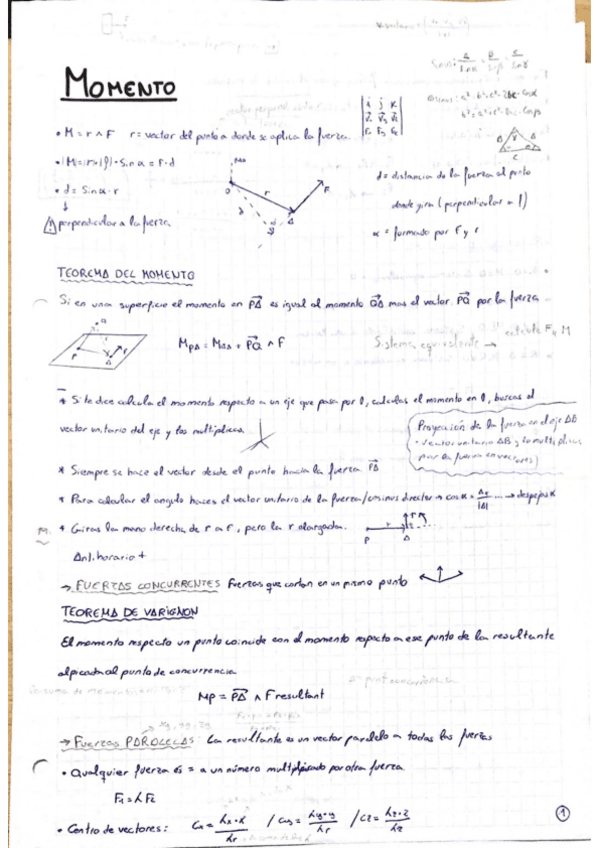 MOMENTO
• M = r ∧ F r = vector del punto a donde se aplica la fuerza.
|i j k|
• |M| = |r|·|f|·Sin α = F·d
• d = Sin α · r
↓
perpendicular a la fuerza
d = distancia de la fuerza al punto
donde gira (perpendicular a f)
α = formado por F y r
TEOREMA DEL MOMENTO
Si en una superficie el momento en PA es igual al momento QA mas el vector PQ por la fuerza
M PA = M QA + PQ ∧ F
Sistema equivalente → calcula F y M
* Si te dice calcula el momento respecto a un eje que pasa por O, calculas el momento en O, buscas el
vector unitario del eje y los multiplicas.
Proyección de la fuerza en el eje AB
• vector unitario AB y lo multiplicas
por la fuerza en vectores)
* Siempre se hace el vector desde el punto hacia la fuerza PA
* Para calcular el angulo haces el vector unitario de la fuerza/cosinus director → cos α = ... → despejas α
* Giras la mano derecha de r a F, pero la r alargada.
Anti.horario +
→ FUERZAS CONCURRENTES Fuerzas que cortan en un mismo punto
TEOREMA DE VARIGNON
El momento respecto un punto coincide con el momento respecto a ese punto de la resultante
aplicada al punto de concurrencia
MP = PA ∧ F resultant
→ Fuerzas PARALELAS: La resultante es un vector paralelo a todas las fuerzas
• Qualquier fuerza es = a un número multiplicado por otra fuerza
F1 = λ F2
• Centro de vectores:
1